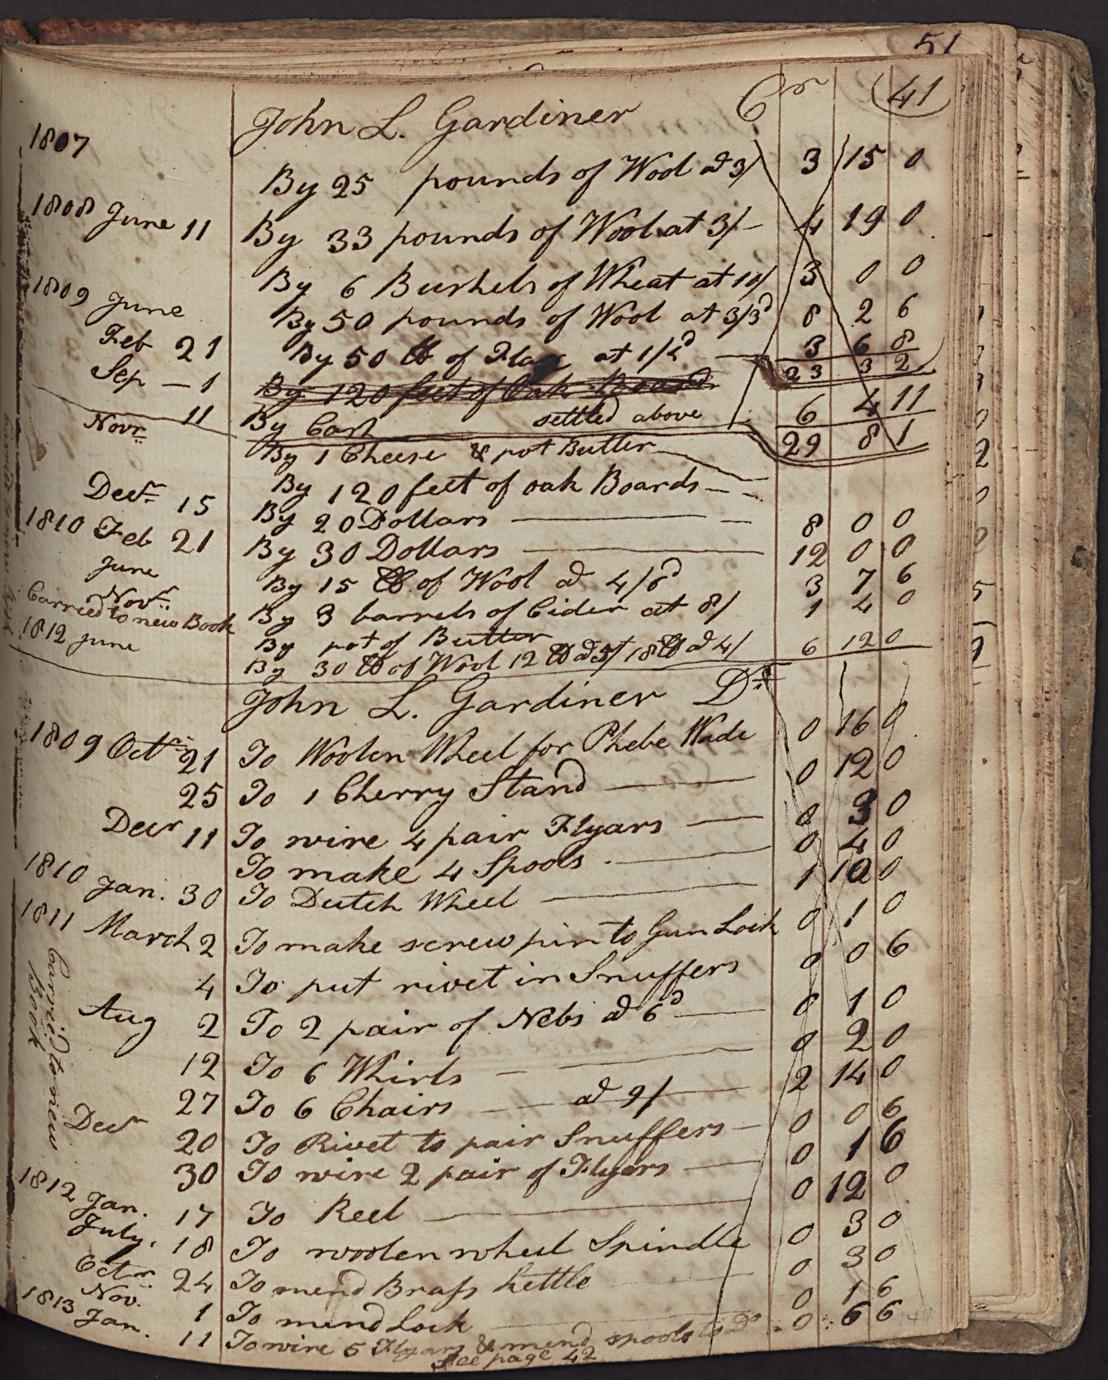 51
41
John L. Gardiner Cr
1807 By 25 pounds of Wool at 3/ 3 15 0
1808 June 11 By 33 pounds of Wool at 3/- 4 19 0
By 6 Bushels of Wheat at 10/ 3 0 0
1809 June By 50 pounds of Wool at 3/3d 8 2 6
Feb 21 By 50 lb of Flax at 1/4d 3 6 8
23 3 2
Sep - 1 By 120 feet of Oak Board
11 By Cart settled above 6 4 11
Novr. By 1 Cheese & pot Butter 29 8 1
By 120 feet of oak Boards
Decr. 15 By 20 Dollars 8 0 0
1810 Feb 21 By 30 Dollars 12 0 0
June By 15 lb of Wool at 4/6d 3 7 6
Novr. By 3 barrels of Cider at 8/ 1 4 0
Carried to new Book By pot of Butter
1812 June By 30 lb of Wool 12 lb at 5/ 18 lb at 4/ 6 12 0
John L. Gardiner Dr
1809 Octr. 21 To Woolen Wheel for Phebe Wade 0 16 0
25 To 1 Cherry Stand 0 12 0
Decr 11 To wire 4 pair Flyars 0 3 0
To make 4 Spools 0 4 0
1810 Jan. 30 To Dutch Wheel 1 10 0
1811 March 2 To make screw pin to Gun Lock 0 1 0
4 To put rivet in Snuffers 0 0 6
Aug 2 To 2 pair of Nebs at 6d 0 1 0
12 To 6 Whirls 0 2 0
27 To 6 Chairs at 9/ 2 14 0
Decr 20 To Rivet to pair Snuffers 0 0 6
30 To wire 2 pair of Flyers 0 1 6
1812 Jan. 17 To Reel 0 12 0
July. 18 To woolen wheel Spindle 0 3 0
Octr. 24 To mend Brass kettle 0 3 0
Nov. 1 To mend Lock 0 1 6
1813 Jan. 11 To wire 5 Flyars & mend spools to Do 0 6 6
See page 42
Carried to new Book